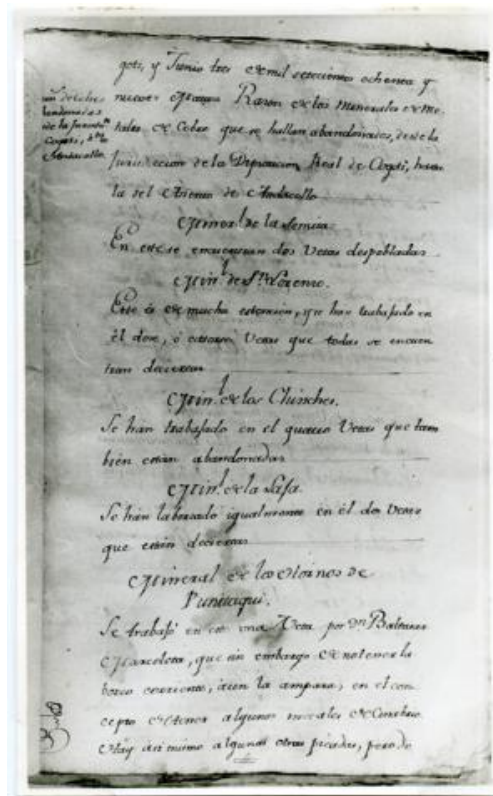 goti, y Junio tres de mil setecientos ochenta y
nueve Razon de los Minerales de Me-
tales de Cobre que se hallan abandonados, desde la
Jurisdiccion de la Diputacion Real de Cogoti, hasta
la del Asiento de Andacollo
Cogoti, á
Andacollo.
Minl. de la
En este se encuentran dos Vetas despobladas
Min.l de Sn. Lorenzo.
Este es de mucha estencion, que han trabajado en
él dose, ó catorse Vetas que todas se encuen
tran deciertas
Min.l de los Chinches.
Se han trabajado en el quatro Vetas que tam
bién están abandonadas
Min.l de la Laja.
Se han labrado igualmente en él dos Vetas
que están deciertas
Mineral de los Hornos de
Punitaqui.
Se trabajó en este una Veta por Dn. Baltasar
Marcoleta, que sin embargo de no tener la
corriente, aun la ampara, en el con-
cepto de tener algunos metales de
Hay asi mismo algunas otras picadas, pero de